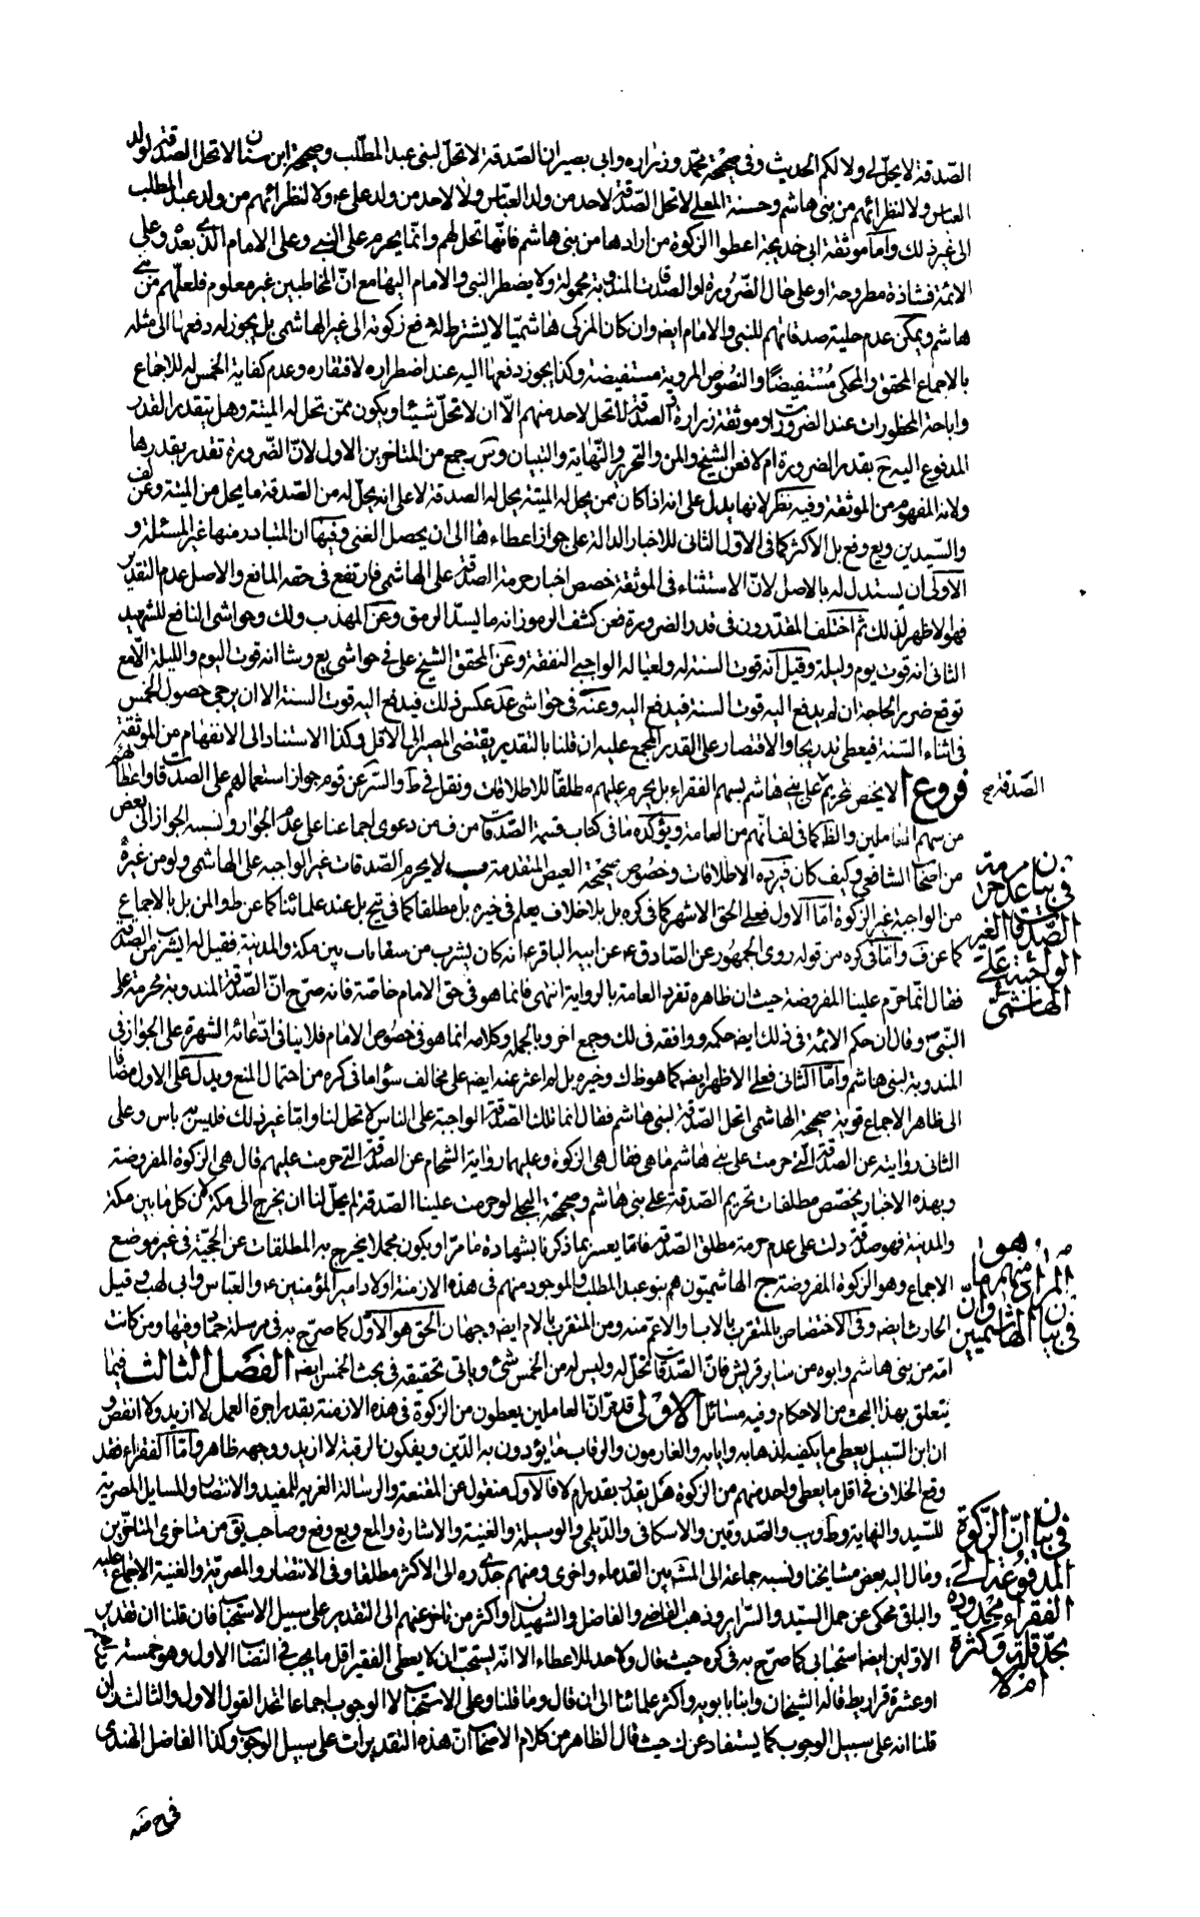 الصّدقة لا يحلّ لي ولا لكم الحديث وفي صحيحة محمّد وزرارة وابي بصير ان الصّدقة لا تحلّ لبني عبد المطّلب وصحيحة ابن سنان لا تحل الصدقة لولد
العباس ولا لنظرائهم من بني هاشم وحسنة المعلى لا تحل الصّدقة لاحد من ولد العبّاس ولا لاحد من ولد علي ع ولا لنظرائهم من ولد عبد المطلب
الى غير ذلك وامّا موثقة ابي خديجة اعطوا الزكوة من ارادها من بني هاشم فانّها تحل لهم وانّما يحرم على النبي وعلى الامام الذي بعده وعلى
الائمة فشاذة مطروحة او على حال الضّرورة او الصدقات المندوبة محمولة ولا يضطر النبي والامام اليها مع انّ المخاطبين غير معلوم فلعلّهم من بني
هاشم ويمكن عدم حلية صدقاتهم للنبي والامام ايضا وان كان المزكى هاشميّا لا يشترط له دفع زكوته الى غير الهاشمي بل يجوز له دفعها الى مثله
بالاجماع المحقق والمحكى مستفيضًا والنصوص المروية مستفيضة وكذا يجوز دفعها اليه عند اضطراره لافتقاره وعدم كفاية الخمس له للاجماع
واباحة المحظورات عند الضرورات وموثقة زرارة والصدقة لا تحل لاحد منهم الّا ان لا تحلّ شيئا ويكون ممّن تحل له الميتة وهل يتقدر القدر
المدفوع اليه ح بقدر الضرورة ام لا فعن الشيخ والمن والتحرير والنّهاية والتبيان وس وجمع من المتاخرين الاول لانّ الضّرورة تقدر بقدرها
ولانه المفهوم من الموثقة وفيه نظر لانها يدل على انه اذا كان ممن يحل له الميتة يحل له الصدقة لا على انه يحلّ له من الصّدقة ما يحل من الميتة وعن لف
والسّيدين ويع وفع بل الاكثر كما في الاول الثاني للاخبار الدالة على جواز اعطاءها الى ان يحصل الغنى وفيها ان المتبادر منها غير المسئلة و
الاولى ان يستدل له بالاصل لانّ الاستثناء في الموثقة خصص اخبار حرمة الصدقة على الهاشمي فارتفع في حقه المانع والاصل عدم التقدير
فهو الاظهر لذلك ثم اختلف المقدّرون في قدر الضرورة فعن كشف الرموز انه ما يسدّ الرمق وعن المهذب ولك وحواشي النافع للشهيد
الثاني انه قوت يوم وليلة وقيل انه قوت السنة له ولعياله الواجبي النفقة وعن المحقق الشيخ علي في حواشي يع وشا انه قوت اليوم والليلة الّا مع
توقع ضرر الحاجة ان لم يدفع اليه قوت السنة فيدفع اليه وعنه في حواشي عد عكس ذلك فيدفع اليه قوت السنة الا ان يرجى حصول الخمس
في اثناء السّنة فيعطى تدريجا والاقتصار على القدر المجمع عليه ان قلنا بالتقدير يقتضى المصير الى الاقل وكذا الاستناد الى الانفهام من الموثقة
فروع ا لا يخص تحريم على بني هاشم بسهم الفقراء بل يحرم عليهم مطلقا للاطلاقات ونقل في ط والسّرائر عن قوم جواز استعمالهم على الصدقات واعطائهم
من سهم العاملين والظ كما في لف انّهم من العامة ويؤكده ما في كتاب قسمة الصّدقات من ف من دعوى اجماعنا على عدم الجواز ونسبة الجواز الى بعض
من اصحاب الشافعي وكيف كان فيرده الاطلاقات وخصوص صحيحة العيص المتقدمة ب لا يحرم الصّدقات غير الواجبة على الهاشمي ولو من غيره
من الواجبة غير الزكوة امّا الاول فعلى الحق الاشهر كما في كره بل بلا خلاف يعلم في خيره بل مطلقا كما في يح بل عند علمائنا كما عن ط والمن بل بالاجماع
كما عن ف وامّا في كره من قوله روى الجمهور عن الصّادق ع عن ابيه الباقر ع انه كان يشرب من سقايات بين مكة والمدينة فقيل له اتشرب من الصدقة
فقال انّما حرّم علينا المفروضة حيث ان ظاهره تفرد العامة بالرواية انتهى فانما هو في حق الامام خاصّة فانه صرّح انّ الصّدقة المندوبة محرمة على
النّبي ص وقال ان حكم الائمة في ذلك ايضا حكمه ووافقه في ذلك وجمع اخر وبالجملة كلامه انما هو في خصوص الامام فلا ينافي ادّعائه الشهرة على الجواز في
المندوبة لبني هاشم وامّا الثاني فعلى الاظهر ايضا كما هو ظ ك وخيره بل لم اعثر عنه ايضا على مخالف سوى ما في كره من احتمال المنع ويدلّ على الاول مضافا
الى ظاهر الاجماع قوية صحيحة الهاشمي اتحل الصّدقة لبني هاشم فقال انما تلك الصّدقة الواجبة على الناس لا تحل لنا وامّا غير ذلك فليس به باس وعلى
الثاني روايته عن الصدقة التي حرمت على بني هاشم ما هي فقال هي الزكوة وعليهما رواية الشحام عن الصدقة التي حرمت عليهم قال هي الزكوة المفروضة
وبهذه الاخبار يخصّص مطلقات تحريم الصّدقة على بني هاشم وصحيحة البجلي لو حرمت علينا الصّدقة لم يحلّ لنا ان يخرج الى مكة لان كل ما بين مكة
والمدينة فهو صدقة دلت على عدم حرمة مطلق الصّدقة فامّا يفسر بما ذكرنا بشهادة ما مرّ او يكون مجملا يخرج به المطلقات عن الحجيّة في غير موضع
الاجماع وهو الزكوة المفروضة ج الهاشميّون هم بنو عبد المطلب والموجود منهم في هذه الازمنة اولاد امير المؤمنين ع والعباس وابي لهب وقيل
الحارث ايضا وفي الاختصاص بالمتقرب بالاب او الاعمّ منه ومن المتقرب بالام ايضا وجهان الحق هو الاوّل كما صرّح به في مرسلة حمّاد وفيها ومن كانت
امّه من بني هاشم وابوه من ساير قريش فانّ الصّدقات تحل له وليس له من الخمس شيء وياتي تحقيقه في بحث الخمس ايضا الفصل الثالث فيما
يتعلق بهذا البحث من الاحكام وفيه مسائل الاولى قد مرّ انّ العاملين يعطون من الزكوة في هذه الازمنة بقدر اجرة العمل لا ازيد ولا انقص و
ان ابن السّبيل يعطى ما يكفيه لذهابه وايابه والغارمون والرقاب ما يؤدون به الدّين ويفكون الرقبة لا ازيد ووجهه ظاهر وامّا الفقراء فقد
وقع الخلاف في اقل ما يعطى واحد منهم من الزكوة هل يقدر بقدر ام لا فالاول منقول عن المقنعة والرسالة الغرية للمفيد والانتصار والمسايل المصرية
للسّيد والنهاية وط ويب والصّدوقين والاسكافي والدّيلمي والوسيلة والغنية والاشارة والمع ويع وفع وصاحب يق من متاخري المتاخرين
ومال اليه بعض مشايخنا ونسبه جماعة الى المشهور بين القدماء واخرى ومنهم جدّي ره الى الاكثر مطلقا وفي الانتصار والمصرية والغنية الاجماع عليه
والباقي محكى عن جمل السيّد والسّرائر وذهب القاضي والفاضل والشهيدان واكثر من تاخر عنهم الى التقدير على سبيل الاستحباب فان قلنا ان تقدير
الاوّلين ايضا استحبابي كما صرّح به في كره حيث قال ولا حد للاعطاء الا انه يستحبّ ان لا يعطى الفقير اقل ما يجب في النصاب الاول وهو خمسة دراهم
او عشرة قراريط قاله الشيخان وابنا بابويه واكثر علمائنا الى ان قال وما قلنا وعلى الاستحباب لا الوجوب اجماعا اتحد القول الاول والثالث وان
قلنا انه على سبيل الوجوب كما يستفاد عن ك حيث قال الظاهر من كلام الاصحاب انّ هذه التقديرات على سبيل الوجوب وكذا الفاضل الهندي
الصدقة صح
في بيان عدم حرمة
الصّدقات الغير
الواجبة على
الهاشمي
في بيان الهاشميين وانّ
المراد منهم ما هو
في بيان انّ الزكوة
المدفوعة الى
الفقراء محدودة
بحدّ قلة وكثرة
ام لا
في ح ضه